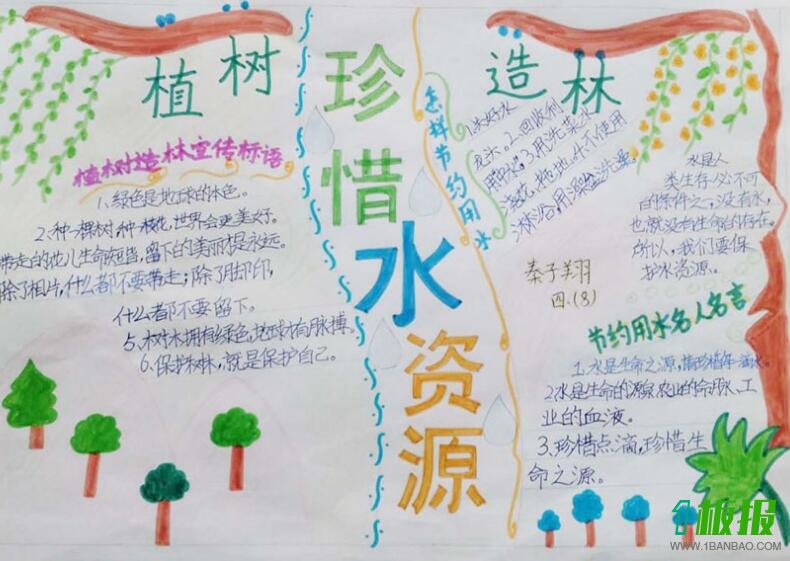 植树
造林
珍惜水资源
植树造林宣传标语
1、绿色是地球的本色。
2、种一棵树,种一枝花,世界会更美好。
带走的花儿生命短暂,留下的美丽才是永远。
除了相片,什么都不要带走;除了脚印,
什么都不要留下。
5、树木拥有绿色,地球才有脉搏。
6、保护树林,就是保护自己。
怎样节约用水
1、关好水
龙头。2、回收利
用中水。3、用洗菜水
浇花、拖地。4、不使用
淋浴,用澡盆洗澡。
水是人
类生存必不可
的条件之一,没有水,
也就没有生命的存在。
所以,我们要保
护水资源。
秦子翔
四.(8)
节约用水名人名言
1、水是生命之源,请珍惜每一滴水。
2、水是生命的源泉、农业的命脉、工
业的血液。
3、珍惜点滴,珍惜生
命之源。
1板报
WWW.1BANBAO.COM